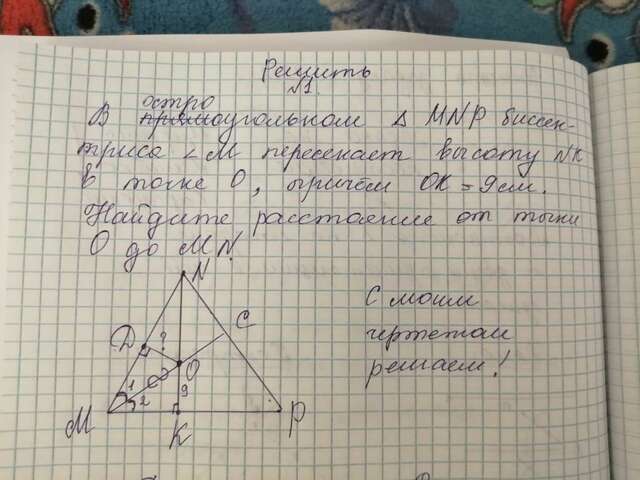 Решить
№1.
В остроугольном △ MNP биссек-
триса ∠M пересекает высоту NK
в точке O, причём OK = 9 см.
Найдите расстояние от точки
O до MN.
С моим
чертежом
решаем!
N
C
D
?
O
1
2
9
M
K
P